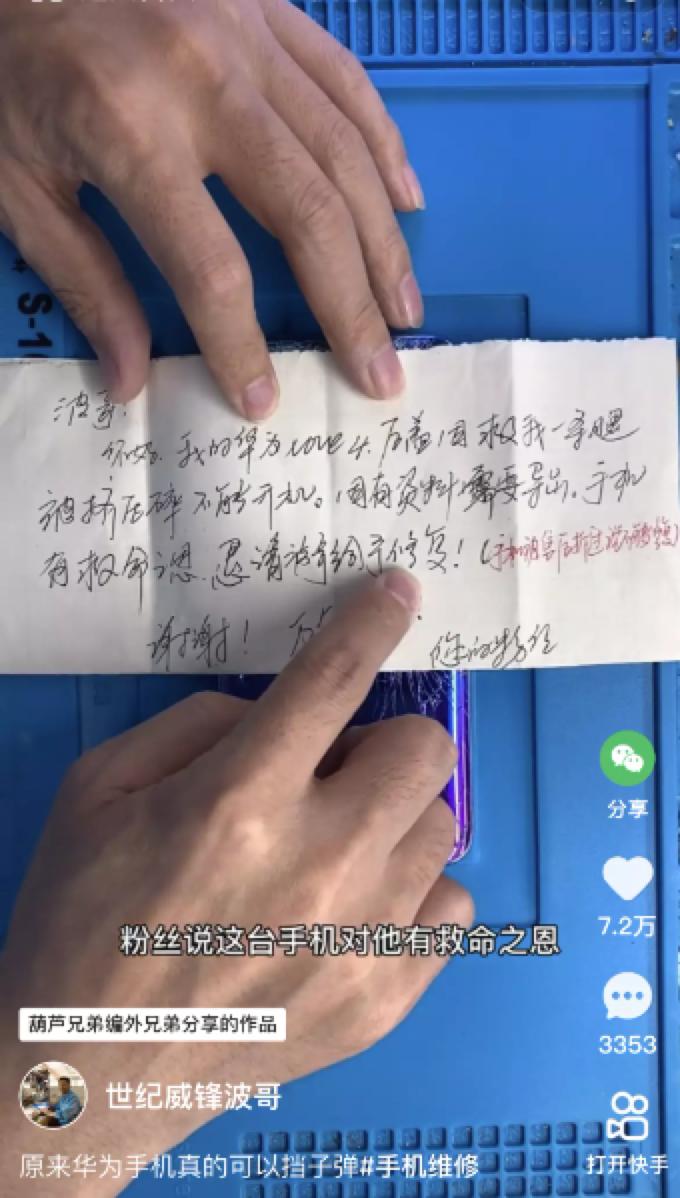 S-1
波哥:
你好. 我的华为nova4. 后盖因救我一条腿
被挤压碎不能开机。因有资料需要导出. 手机
有救命之恩. 恳请波哥给予修复! (手机被售后拆过说不能修复)
谢谢!
您的粉丝
分享
7.2万
粉丝说这台手机对他有救命之恩
3353
葫芦兄弟编外兄弟分享的作品
世纪威锋波哥
原来华为手机真的可以挡子弹#手机维修
打开快手